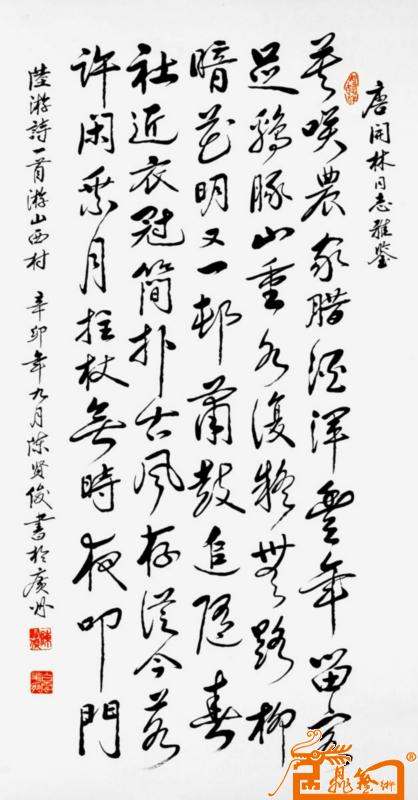 唐開林同志雅鑒
莫咲農家腊酒渾豐年留客
足鷄豚山重水復疑無路柳
暗花明又一邨蕭鼓追隨春
社近衣冠簡朴古風存從今若
許閑乘月拄杖無時夜叩門
陸游詩一首游山西村 辛卯年九月陳賢俊書於廣州